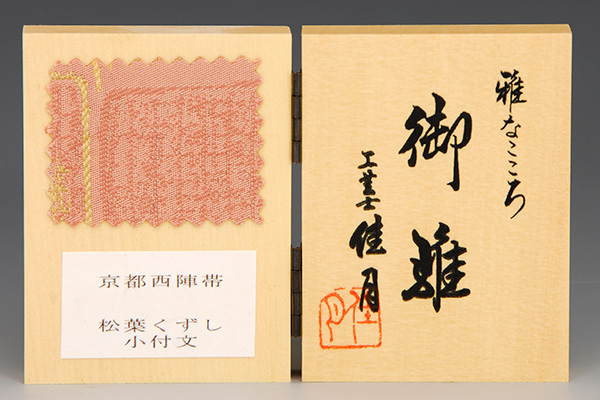 京都西陣帯
松葉くずし
小付文
雅なこころ
御雛
工芸士 佳月